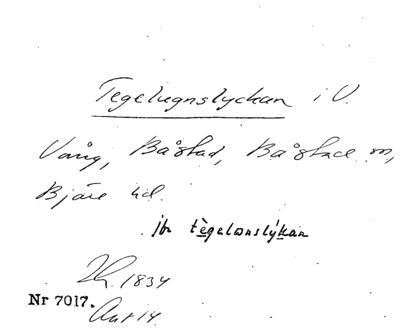 Tegelugnslyckan i V.
Vång, Båstad, Båstad sn,
Bjäre hd.
jbr tègelωnslýkan
1834
Nr 7017.